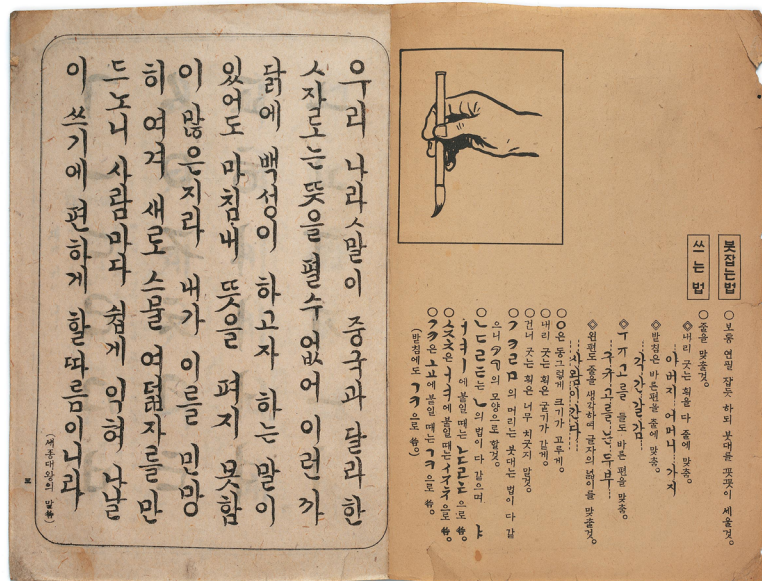 붓잡는법
○보통 연필 잡듯 하되 붓대를 꼿꼿이 세울것。
쓰는법
○줄을 맞출것。
◇내리 긋는 획을 다 줄에 맞춤。
아버지 어머니 가지
◇받침은 바른편을 줄에 맞춤。
각 간 갈 감
◇ㅜㅠ고를 들도 바른 편을 맞춤。
구규고를는두부
◇왼편도 줄을 생각하여 글자의 넓이를 맞출것。
사람이간다
○ㅇ은 동그렇게 크기가 고루게。
○내리 긋는 획은 굵기가 같게。
○건너 긋는 획은 너무 치긋지 말것。
○ㄱㅋㄹㅁ의 머리는 붓대는 법이 다 같
으니 의 모양으로 할것。
○ㄴㄷㄹㅌ는 ㄴ의 법이 다 같으며 ㅑ
ㅓㅕㅣ에 붙일 때는 ㄴㄷㄹㅌ으로 씀。
○ㅅㅈㅊ은 ㅓㅕ에 붙일때는 으로 씀。
○ㄱㅋ은 ㅗㅛ에 붙일 때는 ㄱㅋ으로 씀。
(받침에도 ㄱㅋ으로 씀。)
우리 나라ㅅ말이 중국과 달라 한
ㅅ자로는 뜻을 펼수 없어 이런 까
닭에 백성이 하고자 하는 말이
있어도 마침내 뜻을 펴지 못함
이 많은지라 내가 이를 민망
히 여겨 새로 스물 여덟자를 만
드노니 사람마다 쉽게 익혀 나날
이 쓰기에 편하게 할따름이니라
(세종대왕의 말씀)